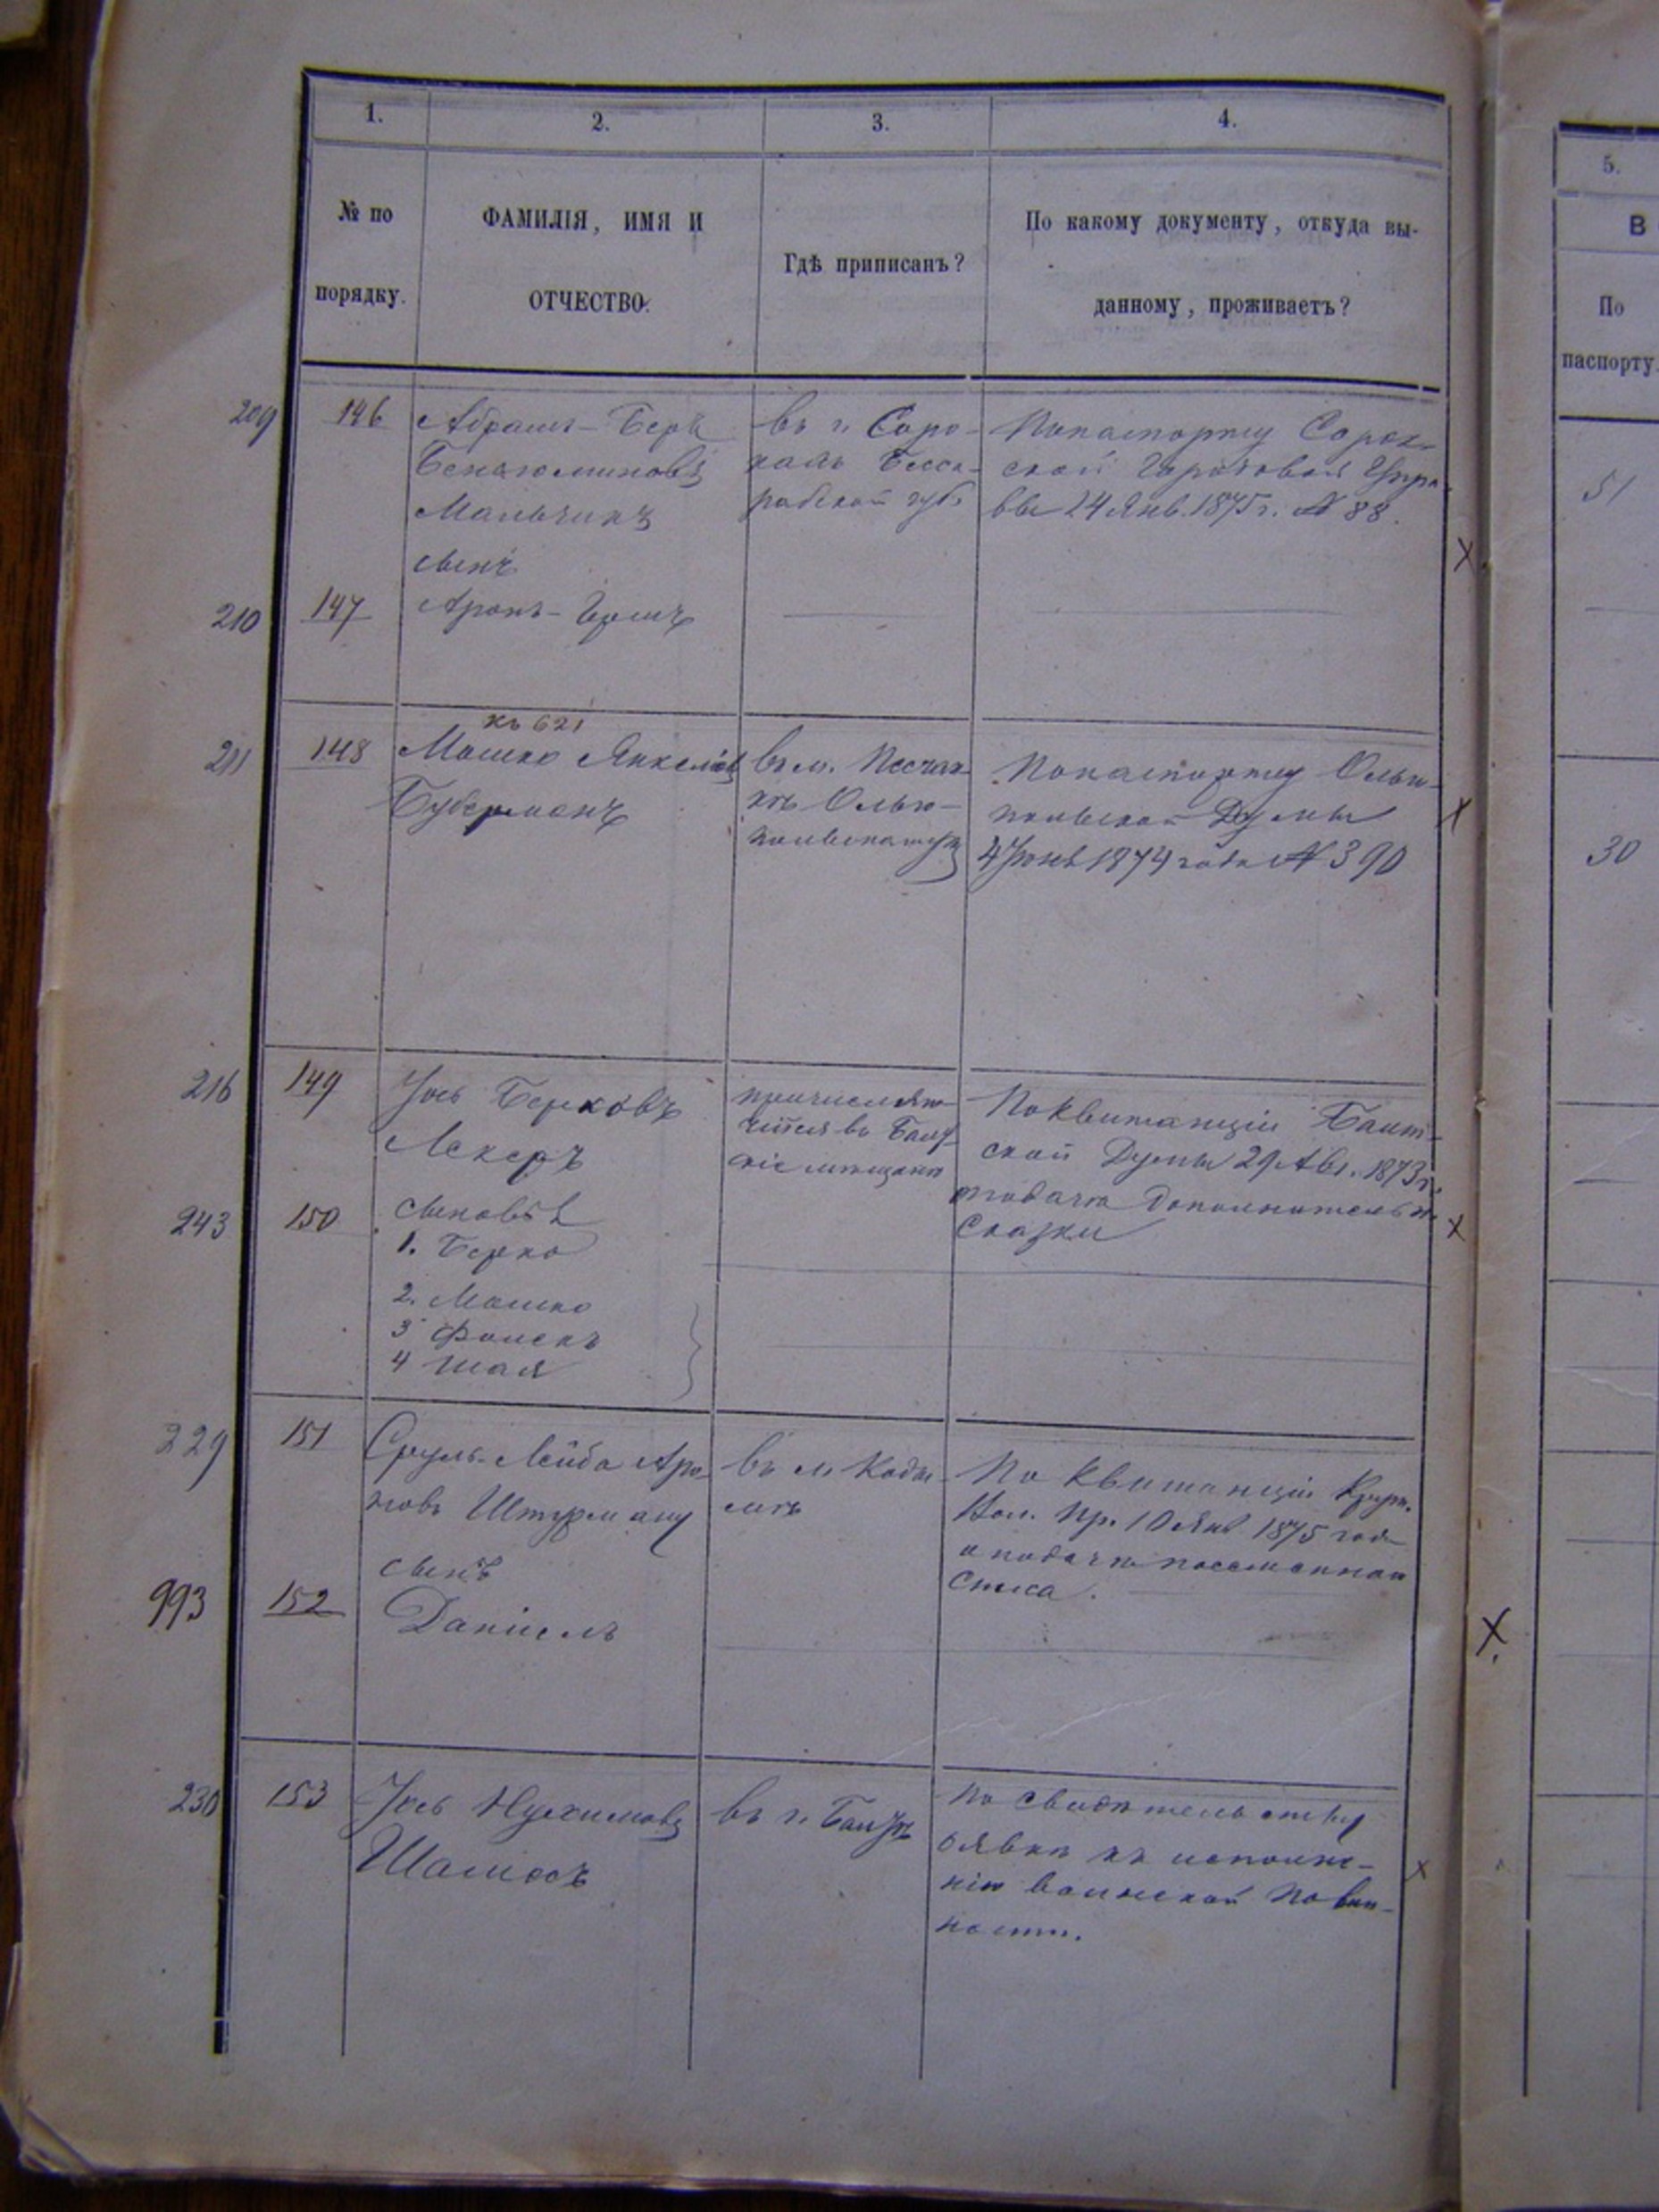 1.
2.
3.
4.
5.
№ по
порядку.
ФАМИЛІЯ, ИМЯ И
ОТЧЕСТВО.
Гдѣ приписанъ?
По какому документу, откуда вы-
данному, проживаетъ?
В
По
паспорту
209
146
Абрамъ-Берк
Бенъюминовъ
Мальчикъ
сынъ
въ г. Соро-
кахъ Бесса-
рабской губ.
По паспорту Сорок-
ской Городовой Упра-
вы 24 Янв. 1875 г. № 88.
51
210
147
Аронъ-Гершъ
къ 621
211
148
Мошко Янкелев
Губерманъ
въ м. Песчан-
кѣ Ольго-
По паспорту Ольго-
польской Думы
4 Іюня 1874 года № 390
30
216
149
Іось Берковъ
Лекеръ
причисляю-
щійся въ Балт-
скіе мѣщане
По квитанціи Балт-
ской Думы 29 Авг. 1873 г.
о подачѣ дополнительн.
сказки
243
150
сыновья
1. Берко
2. Мошко
3 Фалекъ
4 Шая
229
151
Сруль-Лейба Аро-
новъ Штурманъ
въ м. Коды-
мѣ
По квитанціи
Вол. Пр. 10 Янв 1875 года
о подачѣ посемейнаго
списка.
993
152
сынъ
Даніелъ
230
153
Іось Нухимовъ
Шамесъ
въ г. Балтѣ
По свидѣтельству
о явкѣ къ исполне-
нію воинской повин-
ности.